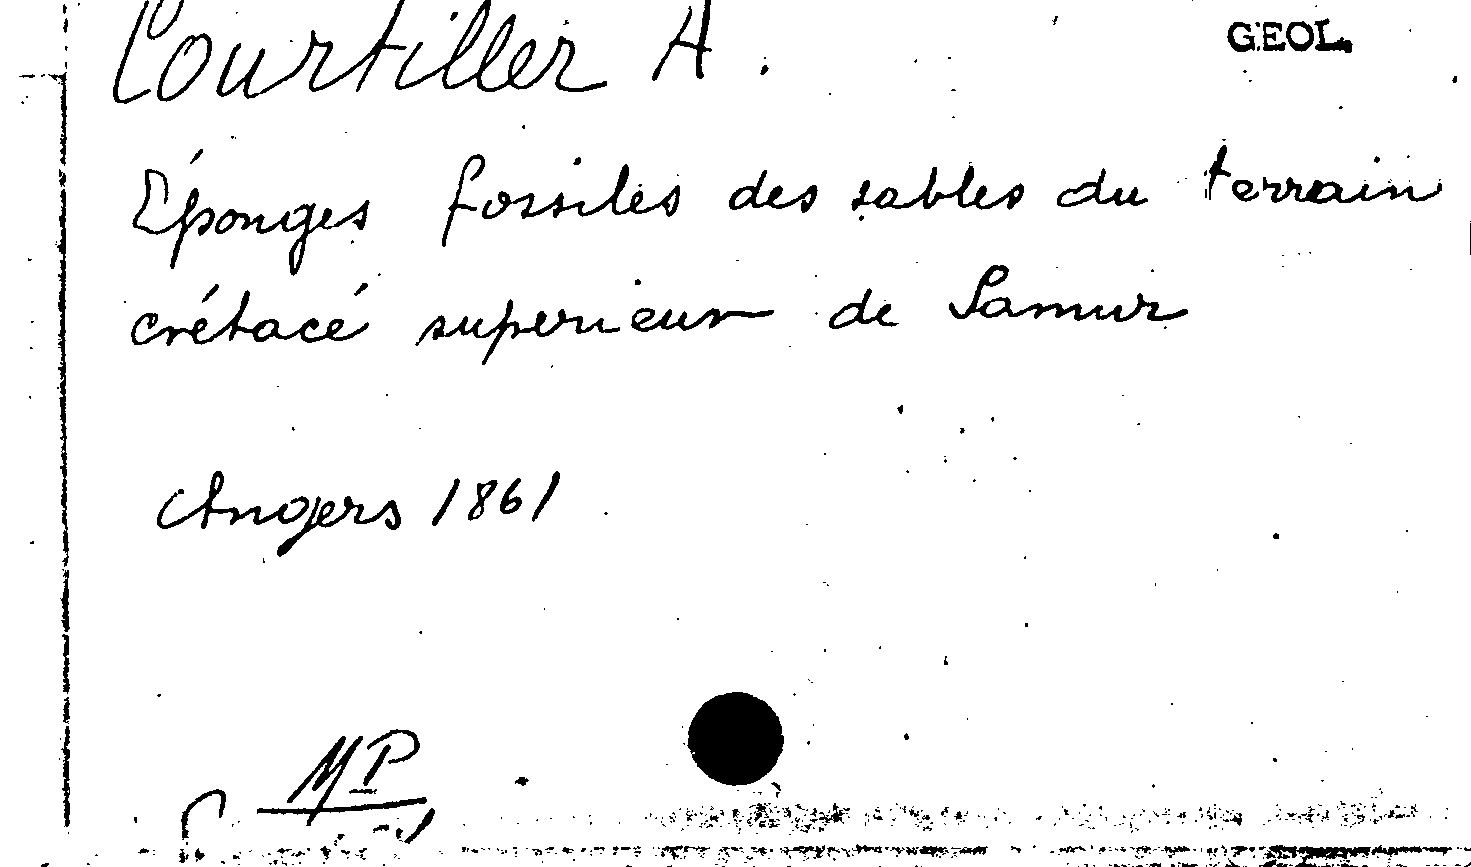 Courtiller A. GEOL.
Éponges fossiles des sables du terrain
crétacé superieur de Samur
Angers 1861
MP